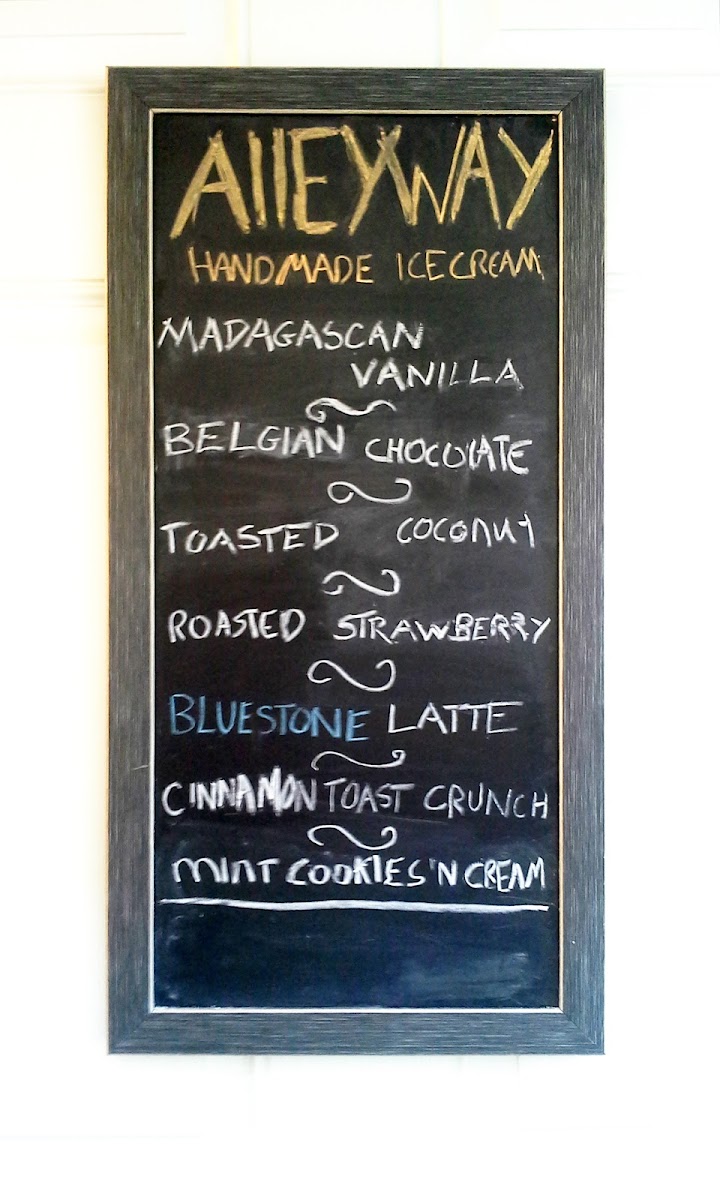 AllEYWAY
HANDMADE ICE CREAM
MADAGASCAN
VANILLA
BELGIAN CHOCOLATE
TOASTED COCONUT
ROASTED STRAWBERRY
BLUESTONE LATTE
CINNAMON TOAST CRUNCH
MINT COOKIES 'N CREAM